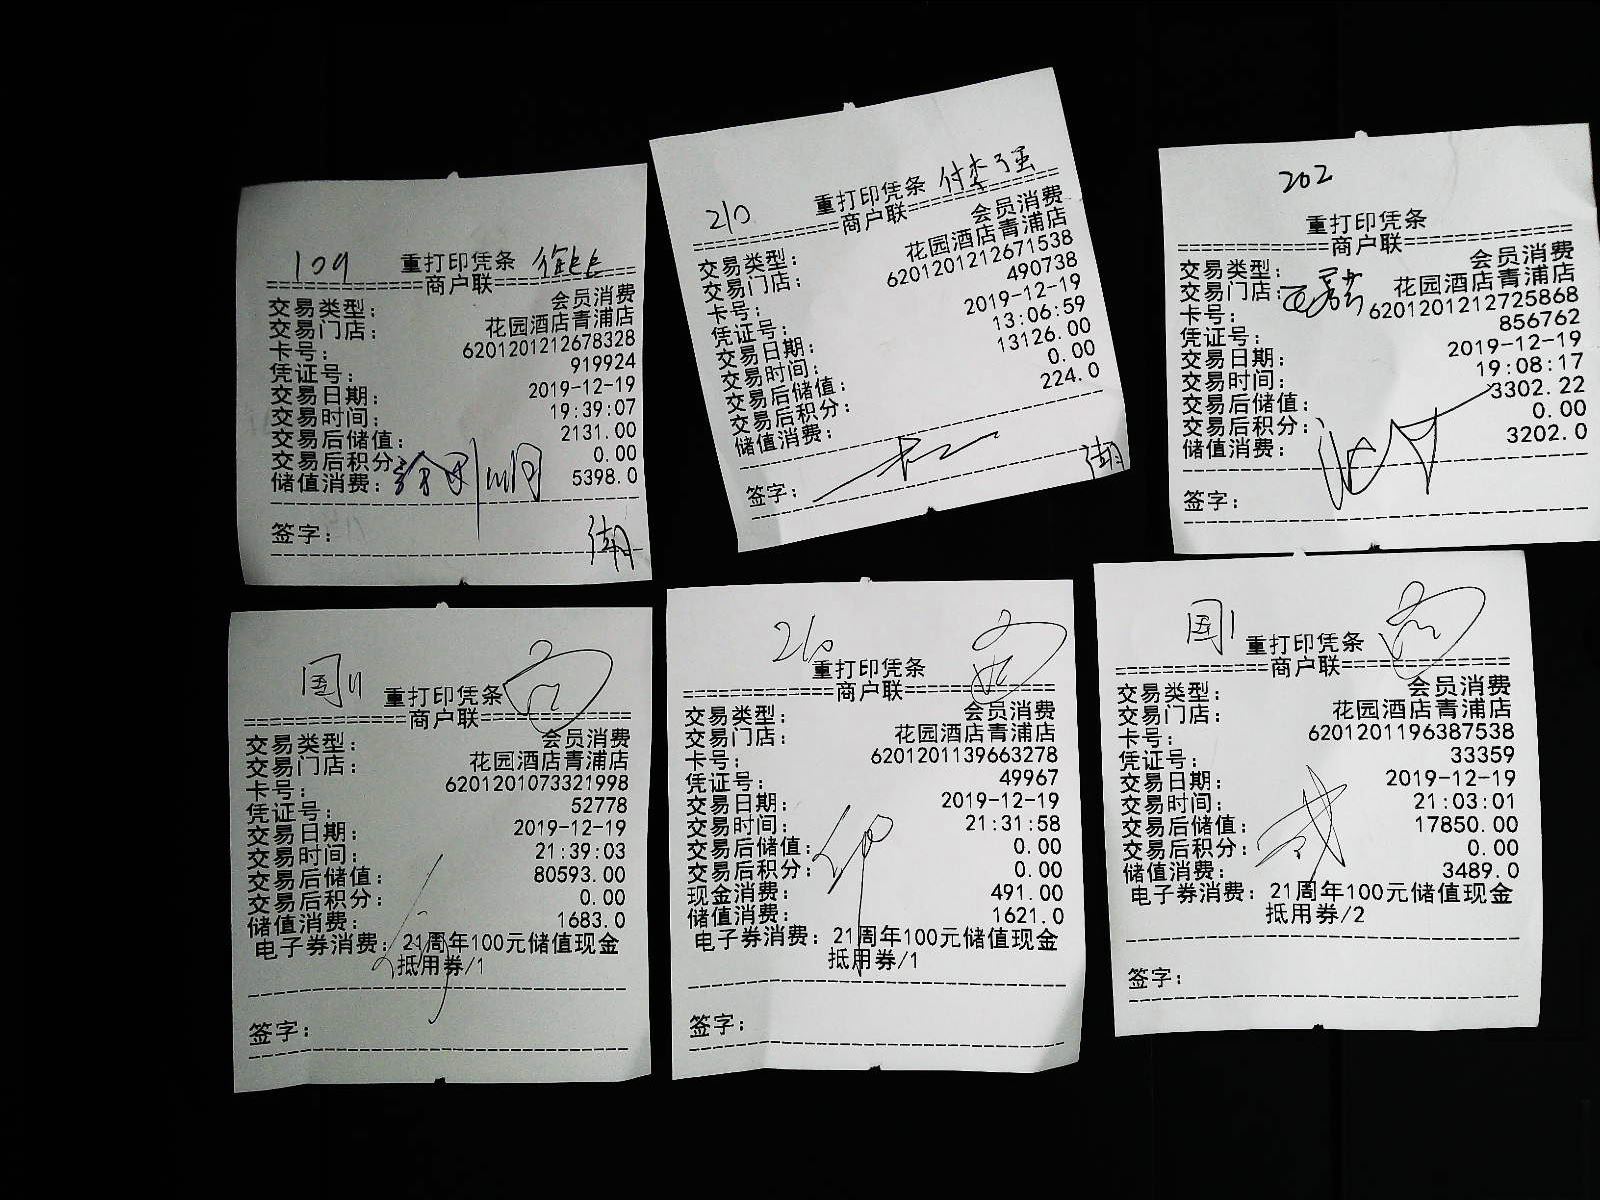 109
重打印凭条
==============商户联==============
交易类型: 会员消费
交易门店: 花园酒店青浦店
卡号: 6201201212678328
凭证号: 919924
交易日期: 2019-12-19
交易时间: 19:39:07
交易后储值: 2131.00
交易后积分: 0.00
储值消费: 5398.0
签字:
210 重打印凭条 付李强
==============商户联==============
交易类型: 会员消费
交易门店: 花园酒店青浦店
卡号: 6201201212671538
凭证号: 490738
交易日期: 2019-12-19
交易时间: 13:06:59
交易后储值: 13126.00
交易后积分: 0.00
储值消费: 224.0
签字:
202
重打印凭条
==============商户联==============
交易类型: 会员消费
交易门店: 花园酒店青浦店
卡号: 6201201212725868
凭证号: 856762
交易日期: 2019-12-19
交易时间: 19:08:17
交易后储值: 3302.22
交易后积分: 0.00
储值消费: 3202.0
签字:
重打印凭条
==============商户联==============
交易类型: 会员消费
交易门店: 花园酒店青浦店
卡号: 6201201073321998
凭证号: 52778
交易日期: 2019-12-19
交易时间: 21:39:03
交易后储值: 80593.00
交易后积分: 0.00
储值消费: 1683.0
电子券消费: 21周年100元储值现金
抵用券/1
签字:
210
重打印凭条
==============商户联==============
交易类型: 会员消费
交易门店: 花园酒店青浦店
卡号: 6201201139663278
凭证号: 49967
交易日期: 2019-12-19
交易时间: 21:31:58
交易后储值: 0.00
交易后积分: 0.00
现金消费: 491.00
储值消费: 1621.0
电子券消费: 21周年100元储值现金
抵用券/1
签字:
重打印凭条
==============商户联==============
交易类型: 会员消费
交易门店: 花园酒店青浦店
卡号: 6201201196387538
凭证号: 33359
交易日期: 2019-12-19
交易时间: 21:03:01
交易后储值: 17850.00
交易后积分: 0.00
储值消费: 3489.0
电子券消费: 21周年100元储值现金
抵用券/2
签字: